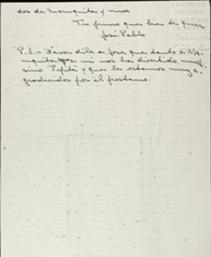 dos de Manquita y míos
Tu primo que bien te quiere
José Pablo
P.S.- Favor dile a Jose que tanto a Ma-
nquita como a mi nos ha divertido much
simo Pepita y que le estamos muy a-
gradecidos por el préstamo.